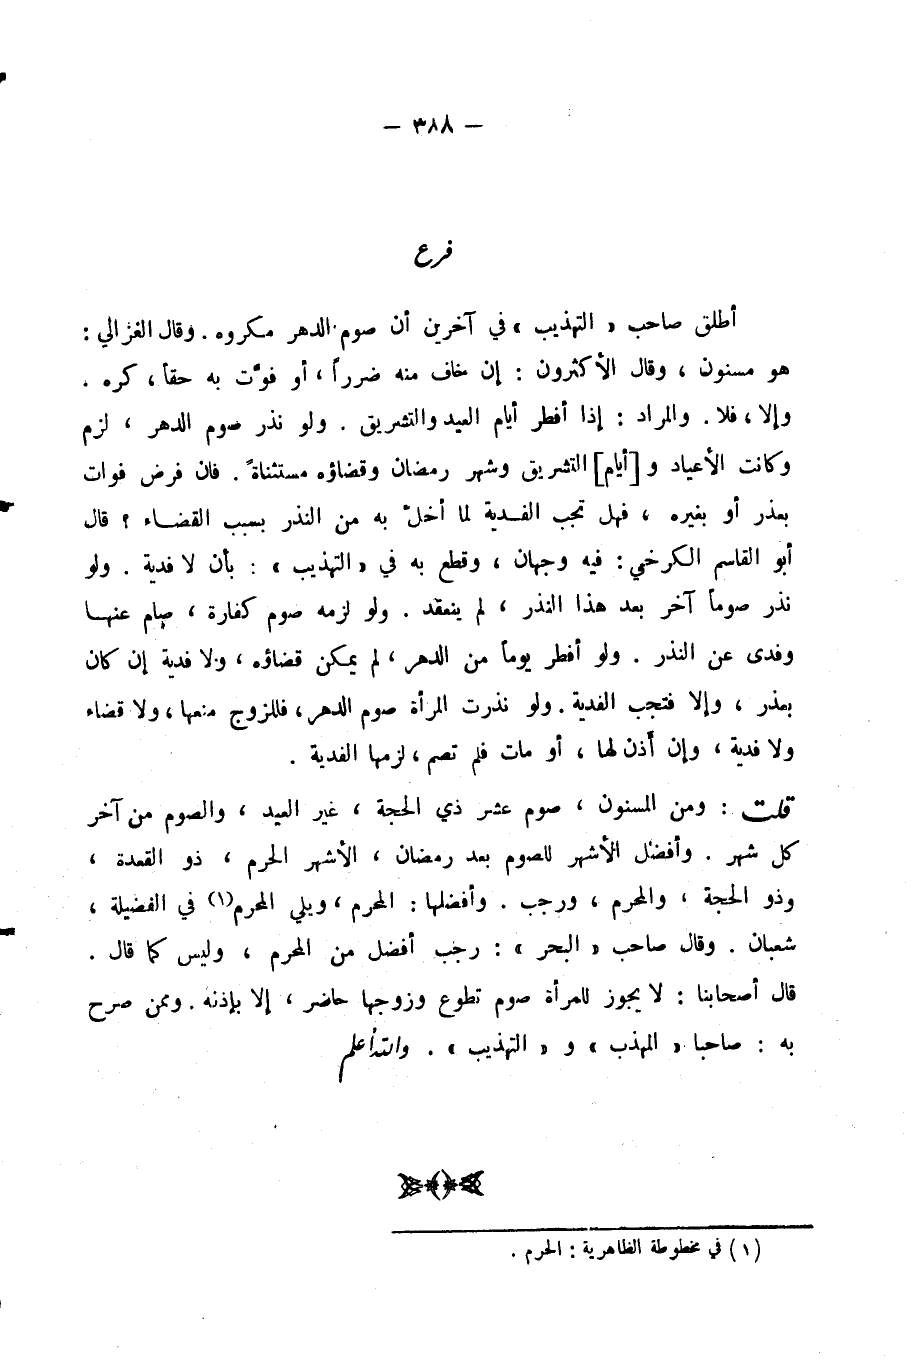 — ٣٨٨ —
فرع
أطلق صاحب « التهذيب » في آخرين أن صوم الدهر مكروه . وقال الغزالي :
هو مسنون ، وقال الأكثرون : إن خاف منه ضرراً ، أو فوَّت به حقاً ، كره .
وإلا ، فلا . والمراد : إذا أفطر أيام العيد والتشريق . ولو نذر صوم الدهر ، لزم
وكانت الأعياد و [أيام] التشريق وشهر رمضان وقضاؤه مستثناةً . فان فرض فوات
بعذر أو بغيره ، فهل تجب الفدية لما أخلَّ به من النذر بسبب القضاء ؟ قال
أبو القاسم الكرخي : فيه وجهان ، وقطع به في « التهذيب » : بأن لا فدية . ولو
نذر صوماً آخر بعد هذا النذر ، لم ينعقد . ولو لزمه صوم كفارة ، صام عنها
وفدى عن النذر . ولو أفطر يوماً من الدهر ، لم يمكن قضاؤه ، ولا فدية إن كان
بعذر ، وإلا فتجب الفدية . ولو نذرت المرأة صوم الدهر ، فللزوج منعها ، ولا قضاء
ولا فدية ، وإن أَذن لها ، أو مات فلم تصم ، لزمها الفدية .
قلت : ومن المسنون ، صوم عشر ذي الحجة ، غير العيد ، والصوم من آخر
كل شهر . وأفضل الأشهر للصوم بعد رمضان ، الأشهر الحرم ، ذو القعدة ،
وذو الحجة ، والمحرم ، ورجب . وأفضلها : المحرم ، ويلي المحرم(١) في الفضيلة ،
شعبان . وقال صاحب « البحر » : رجب أفضل من المحرم ، وليس كما قال .
قال أصحابنا : لا يجوز للمرأة صوم تطوع وزوجها حاضر ، إلا بإذنه . وممن صرح
به : صاحبا « المهذب » و « التهذيب » . والله أعلم
(١) في مخطوطة الظاهرية : الحرم .